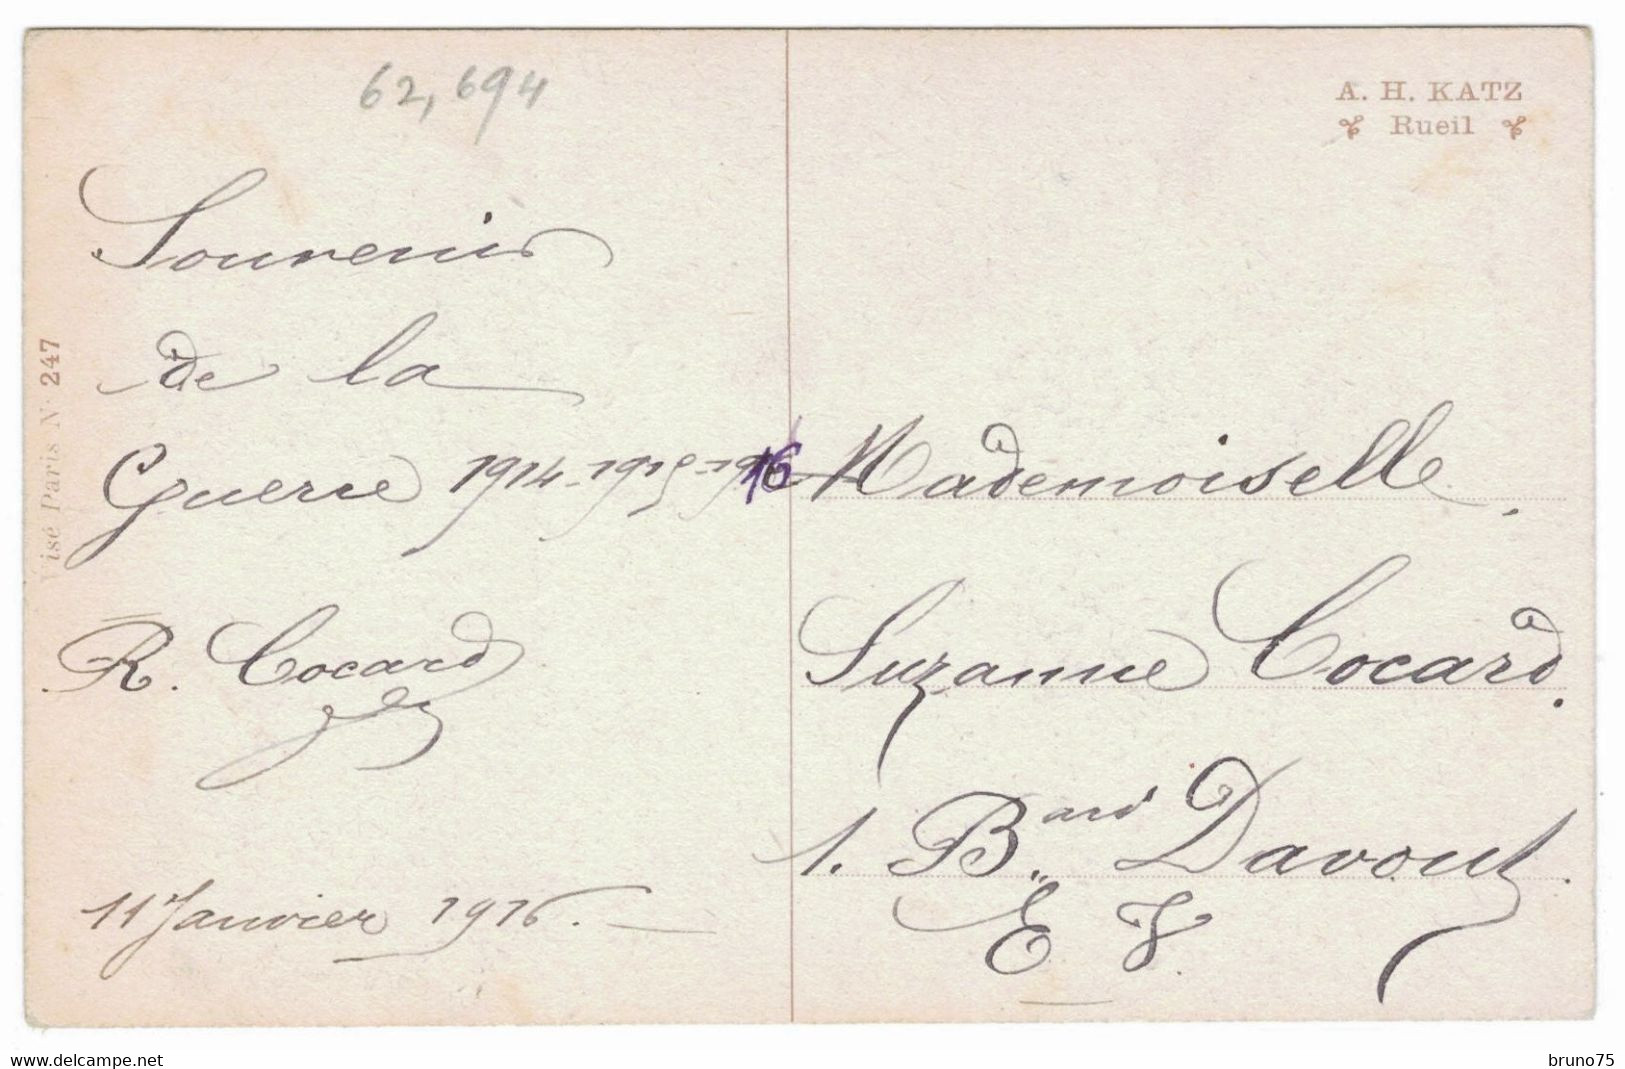 62,694
A. H. KATZ
Rueil
Souvenir
de la
Guerre 1914-1915-1916
R. Cocard
11 Janvier 1916.
Visé Paris N° 247
Mademoiselle.
Suzanne Cocard.
1. Bard Davout.
E V.
delcampe.net
bruno75